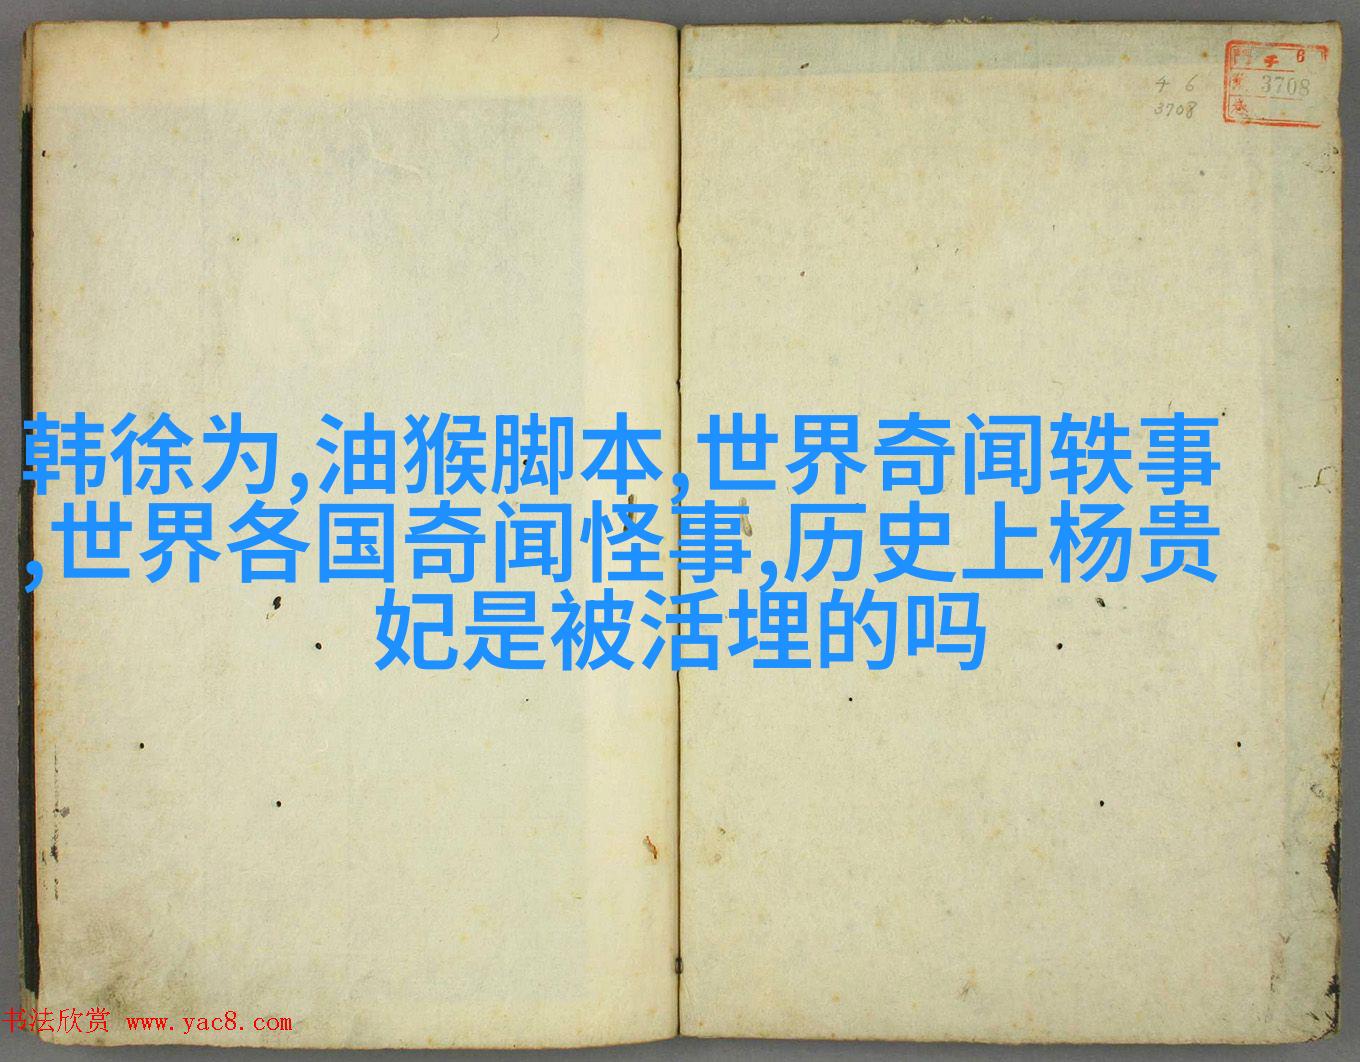 6
4 6
3708
3708
韩徐为,油猴脚本,世界奇闻轶事
,世界各国奇闻怪事,历史上杨贵
妃是被活埋的吗
书法欣赏 www.yac8.com